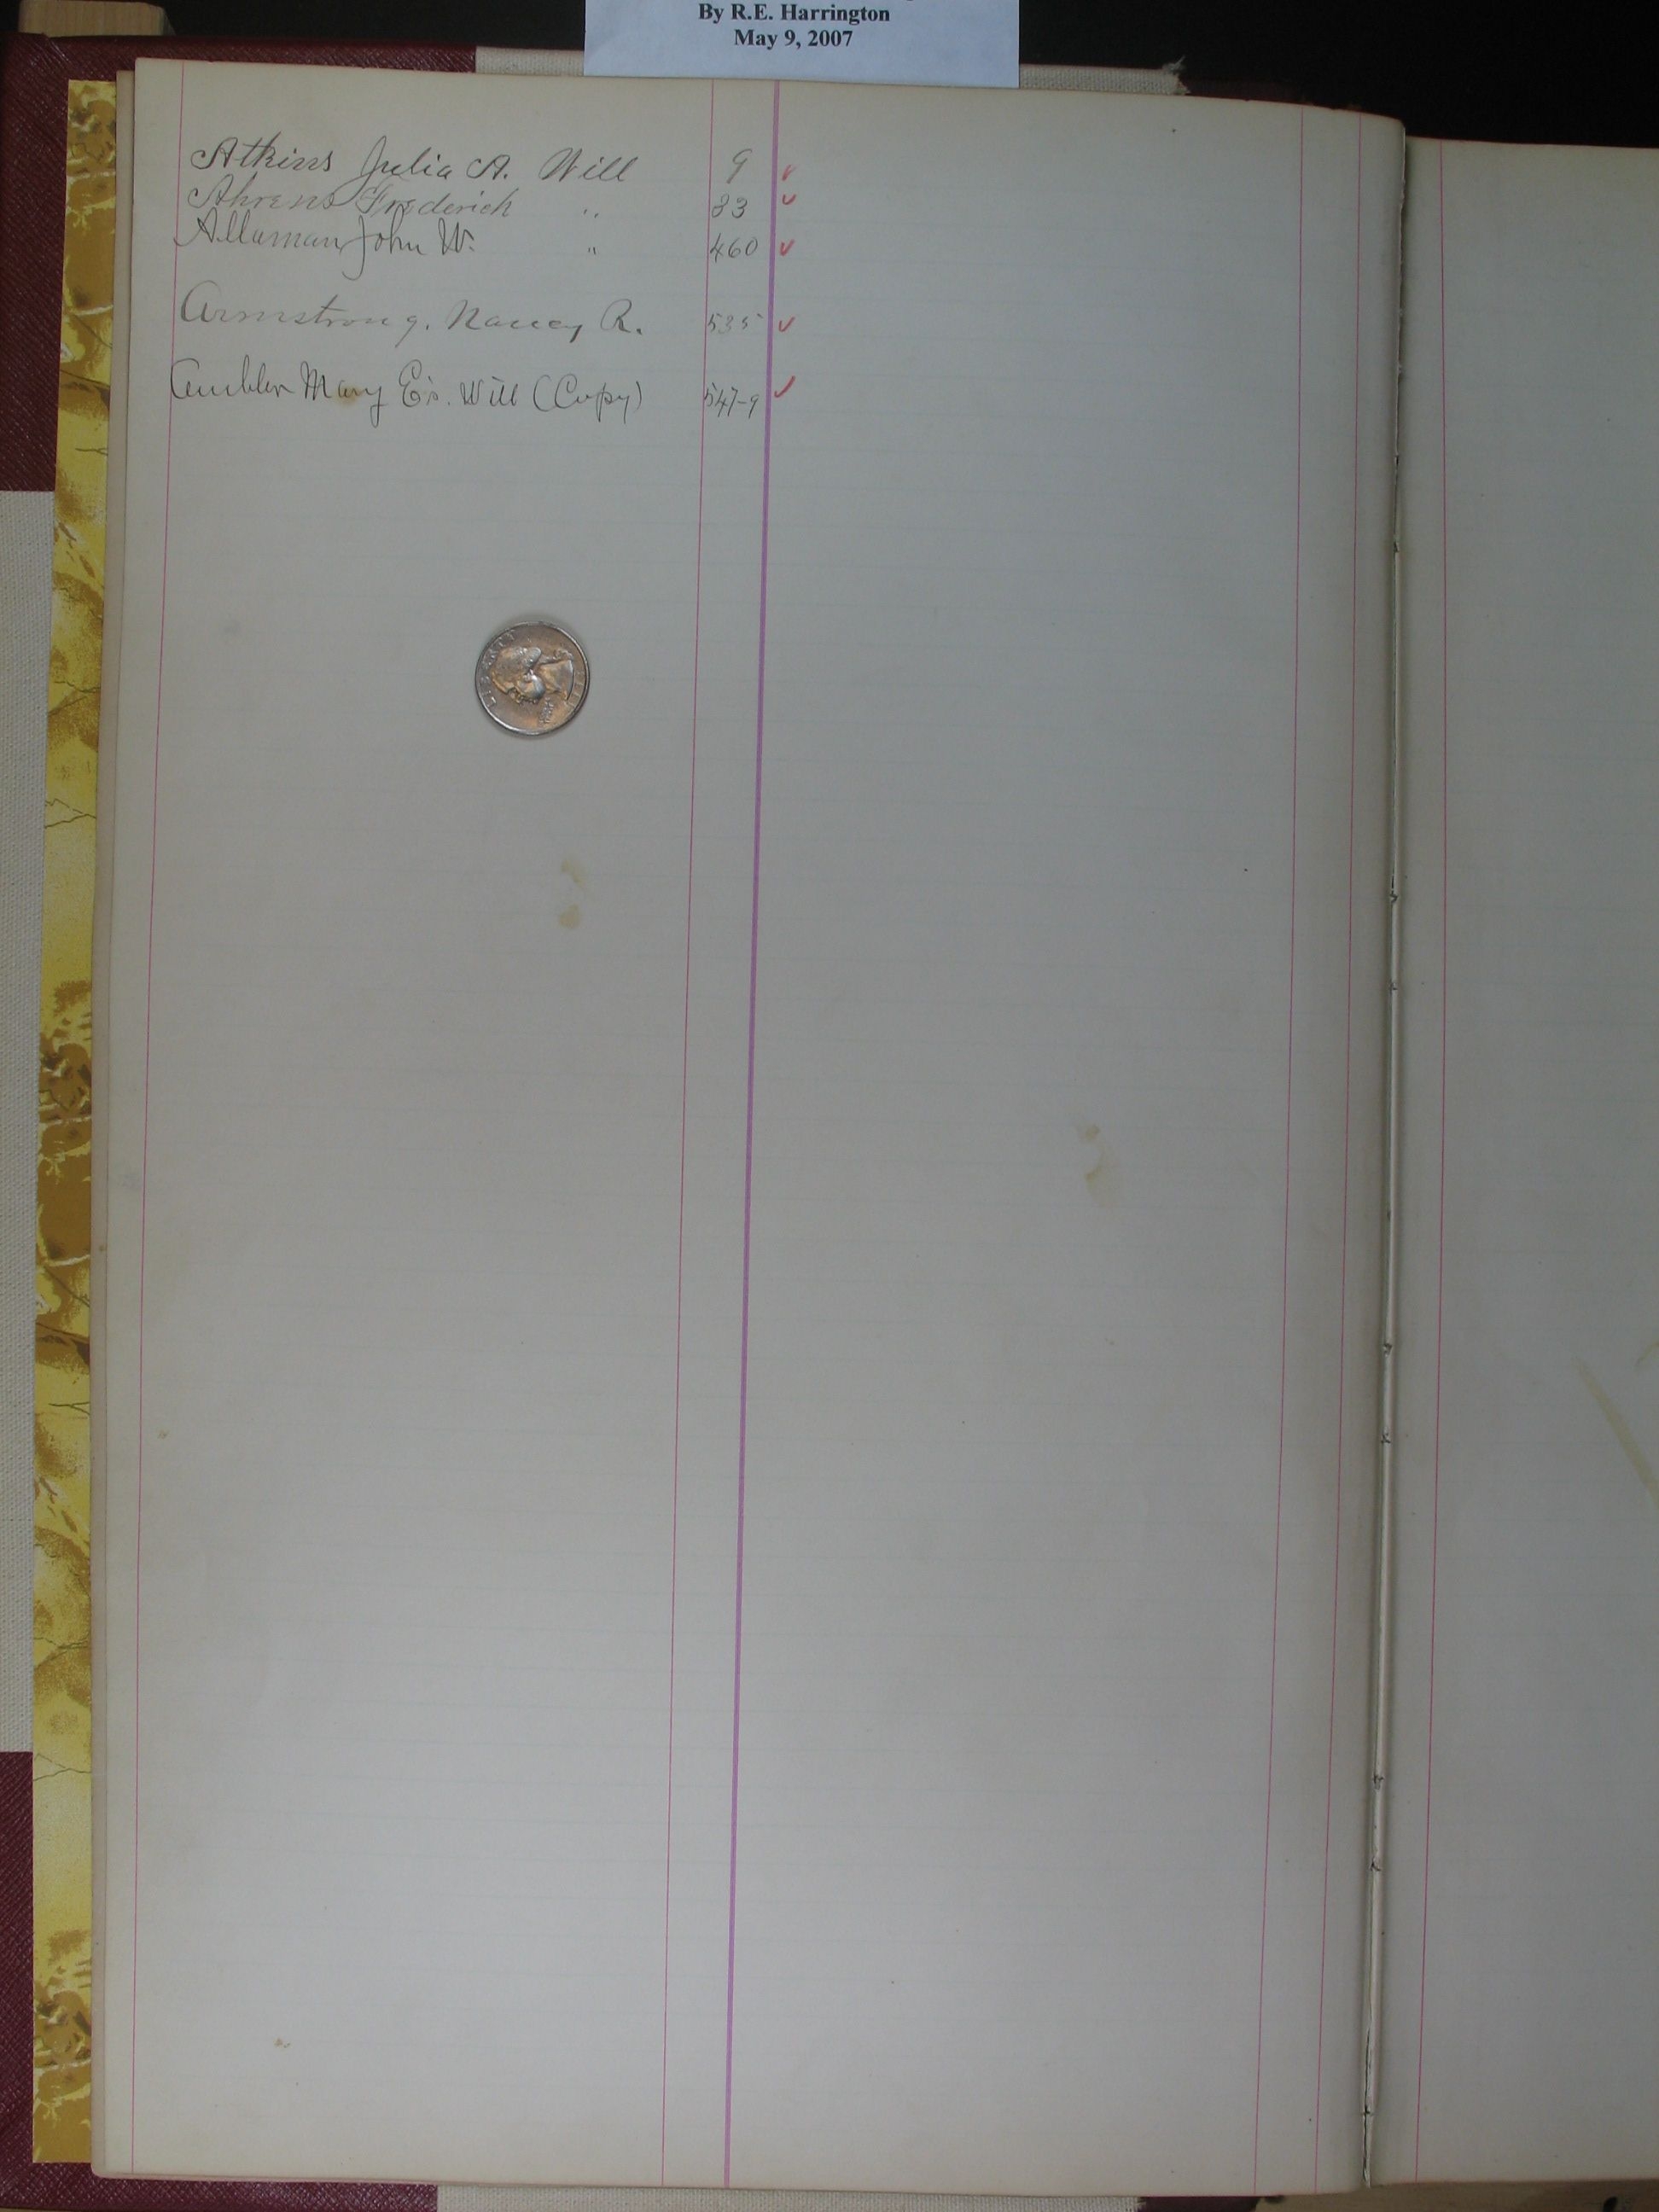 By R.E. Harrington
May 9, 2007
Atkins Julia A. Will 9 ✓
Ahrens Frederich " 83 ✓
Allaman John W. " 460 ✓
Armstrong, Nancy R. 535 ✓
Ambler Mary E's. Will (Copy) 547-9 ✓
LIBERTY